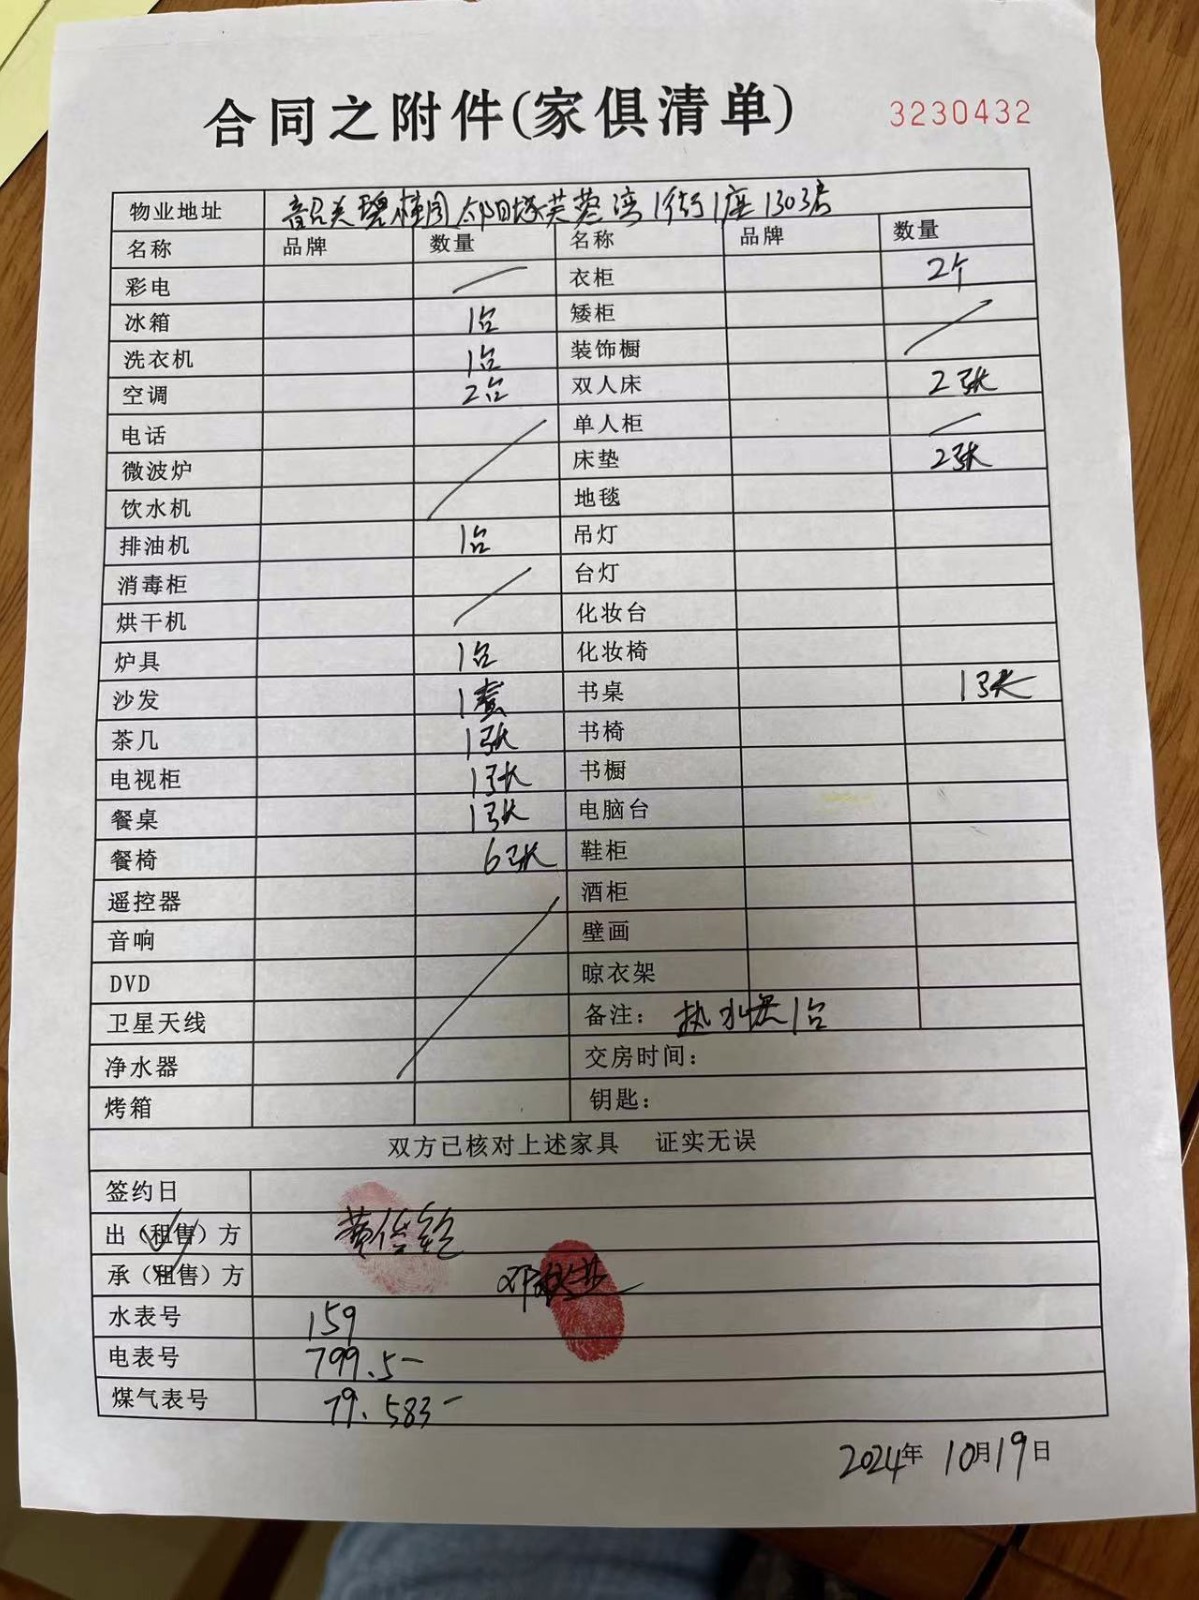 合同之附件(家俱清单) 3230432
物业地址 韶关碧桂园太阳城芙蓉湾1街1座1303房
名称 品牌 数量 名称 品牌 数量
彩电 衣柜 2个
冰箱 1台 矮柜
洗衣机 1台 装饰橱
空调 2台 双人床 2张
电话 单人柜
微波炉 床垫 2张
饮水机 地毯
排油机 1台 吊灯
消毒柜 台灯
烘干机 化妆台
炉具 1台 化妆椅
沙发 1套 书桌 1张
茶几 1张 书椅
电视柜 1张 书橱
餐桌 1张 电脑台
餐椅 6张 鞋柜
遥控器 酒柜
音响 壁画
DVD 晾衣架
卫星天线 备注： 热水器1台
净水器 交房时间：
烤箱 钥匙：
双方已核对上述家具 证实无误
签约日
出（租售）方
承（租售）方
水表号 159
电表号 799.5-
煤气表号 79.583-
2024年 10月19日